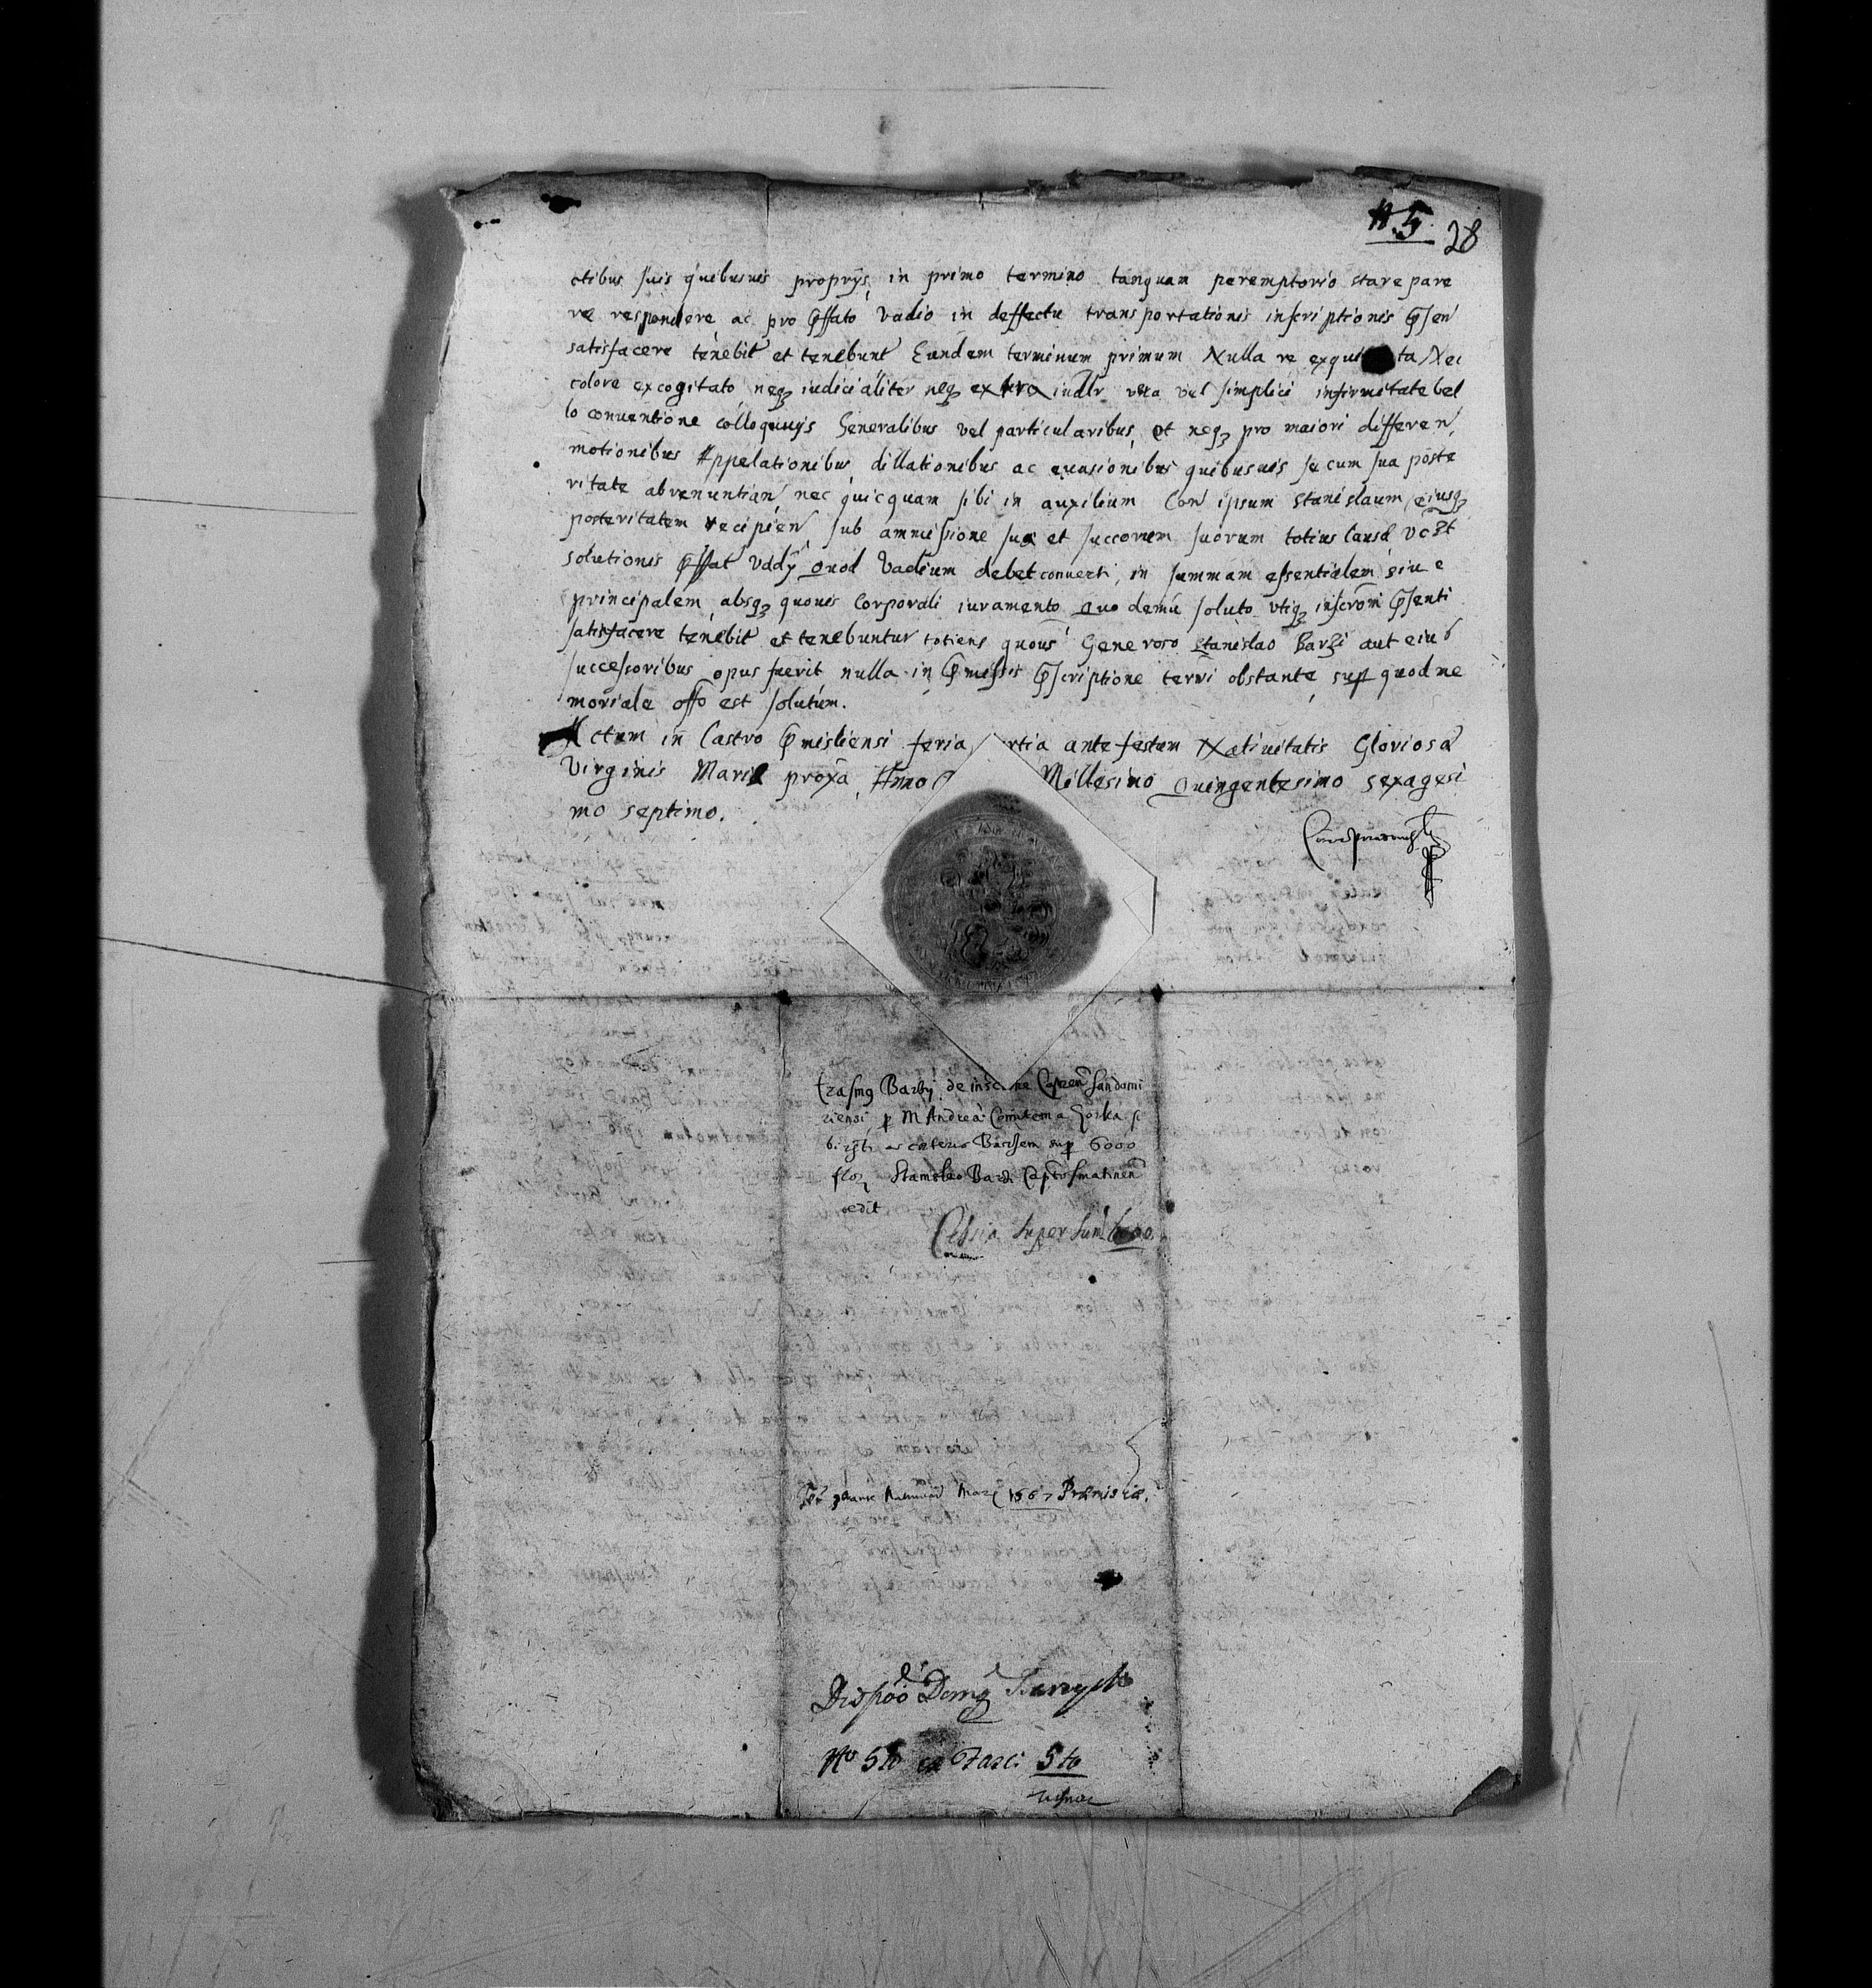 N. 5. 28
ctibus suis quibusuis proprijs, in primo termino tanquam peremptorio stare pare
re respondere, ac pro pffato Vadio in deffectu transportationis inscriptionis psen
satisfacere tenebit et tenebunt Eundem terminum primum Nulla re exqui ta Nec
colore excogitato, neq iudicialiter neq extra iudlr vera vel simplici infirmitate bel
lo conuentione colloquijs Generalibus vel particularibus, et neq pro maiori differen
motionibus Appelationibus dillationibus ac euasionibus quibusuis se cum sua poste
ritate abrenuntian nec quicquam sibi in auxilium Con ipsum Stanislaum eiusq
posteritatem recipien, sub ammissione sua et succorum suorum totius causae
solutionis pffat Vadÿ Quod Vadium debet conuerti, in summam essentialem siue
principalem absq quouis Corporali iuramento Quo demū soluto vtiq inscroni psenti
satisfacere tenebit et tenebuntur totiens quous Generoso Stanislao Barzi aut eius
successoribus opus fuerit nulla in pmissis pscriptione terri obstante, sup quod me
moriale offo est solutum.
Actum in Castro Pmisliensi feria rtia ante festum Natiuitatis Gloriosa
Virginis Mariae proxa Anno Millesimo Quingentesimo sexagesi
mo septimo.
Erasmg Barzy de insc ne Sandomi
riensi, p M Andrea Comitem a Gorka s
ac ceteris sup 6000
flor Stanislao Barzi
cedit
Cessio super sum 6000
1567 Præmisliæ.
No 5to ex Fasci 5to